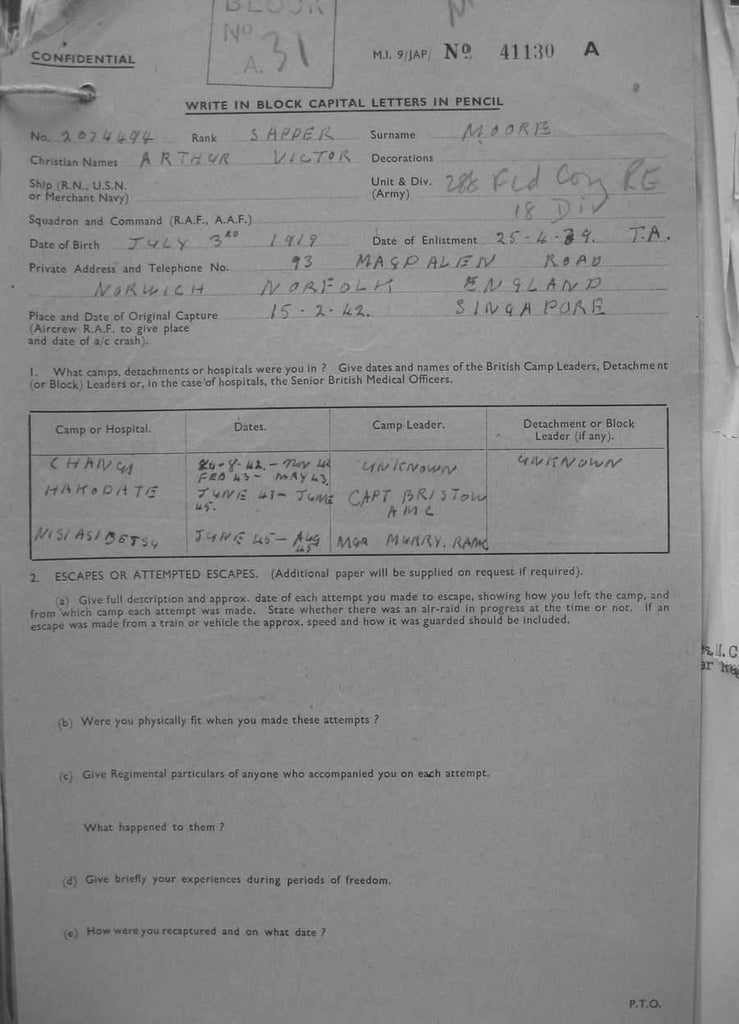 BLOCK
No
A. 31
CONFIDENTIAL
M.I. 9/JAP/ No 41130 A
WRITE IN BLOCK CAPITAL LETTERS IN PENCIL
No. 2074494 Rank SAPPER Surname MOORE
Christian Names ARTHUR VICTOR Decorations
Ship (R.N., U.S.N. or Merchant Navy) Unit & Div. (Army) 288 Fld Coy RE
18 Div
Squadron and Command (R.A.F., A.A.F.)
Date of Birth JULY 3RD 1919 Date of Enlistment 25-4-39. T.A.
Private Address and Telephone No. 93 MAGDALEN ROAD
NORWICH NORFOLK ENGLAND
Place and Date of Original Capture 15-2-42. SINGAPORE
(Aircrew R.A.F. to give place
and date of a/c crash).
1. What camps, detachments or hospitals were you in ? Give dates and names of the British Camp Leaders, Detachment
(or Block) Leaders or, in the case of hospitals, the Senior British Medical Officers.
Camp or Hospital. Dates. Camp Leader. Detachment or Block
Leader (if any).
CHANGI 42.- NOV 42 UNKNOWN UNKNOWN
FEB 43- MAY 43.
HAKODATE JUNE 43- JUNE CAPT BRISTOW
45. AMC
NISIASIBETSU JUNE 45- AUG MURRY.
45
2. ESCAPES OR ATTEMPTED ESCAPES. (Additional paper will be supplied on request if required).
(a) Give full description and approx. date of each attempt you made to escape, showing how you left the camp, and
from which camp each attempt was made. State whether there was an air-raid in progress at the time or not. If an
escape was made from a train or vehicle the approx. speed and how it was guarded should be included.
(b) Were you physically fit when you made these attempts ?
(c) Give Regimental particulars of anyone who accompanied you on each attempt.
What happened to them ?
(d) Give briefly your experiences during periods of freedom.
(e) How were you recaptured and on what date ?
P.T.O.